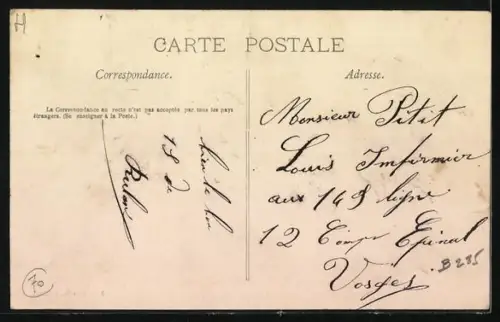 H
CARTE POSTALE
Correspondance.
Adresse.
La Correspondance au recto n'est pas acceptée par tous les pays
étrangers. (Se renseigner à la Poste.)
15 de
Monsieur Petit
Louis Infirmier
aux 149 ligne
12 Comp Epinal
Vosges
B 285